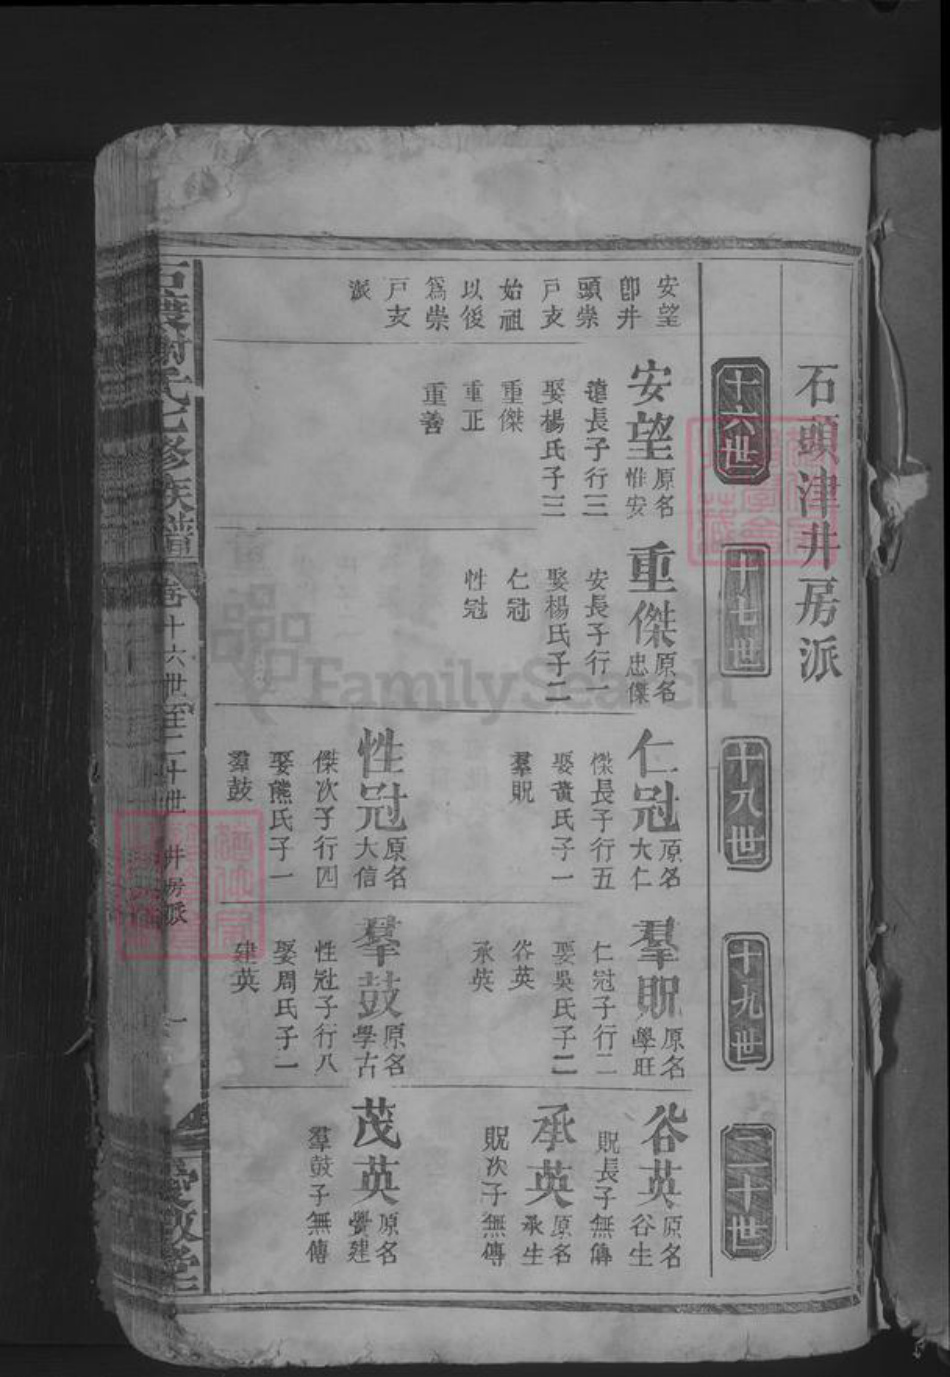 石頭津井房派
十六世
十七世
十八世
十九世
二十世
安望
卽井
頭崇
戸支
始祖
以後
爲崇
戸支
派
安望 原名惟安
長子行三
娶楊氏子三
重傑
重正
重善
重傑 原名忠傑
安長子行一
娶楊氏子二
仁冠
性冠
仁冠 原名大仁
傑長子行五
娶黃氏子一
羣貺
性冠 原名大信
傑次子行四
娶熊氏子一
羣鼓
羣貺 原名學旺
仁冠子行二
娶吳氏子二
谷英
承英
羣鼓 原名學古
性冠子行八
娶周氏子一
建英
谷英 原名谷生
貺長子無傳
承英 原名承生
貺次子無傳
茂英 原名譽建
羣鼓子無傳
氏七修族譜
卷
十六世至二十世
井房派
一
愛敬堂
FamilySearch